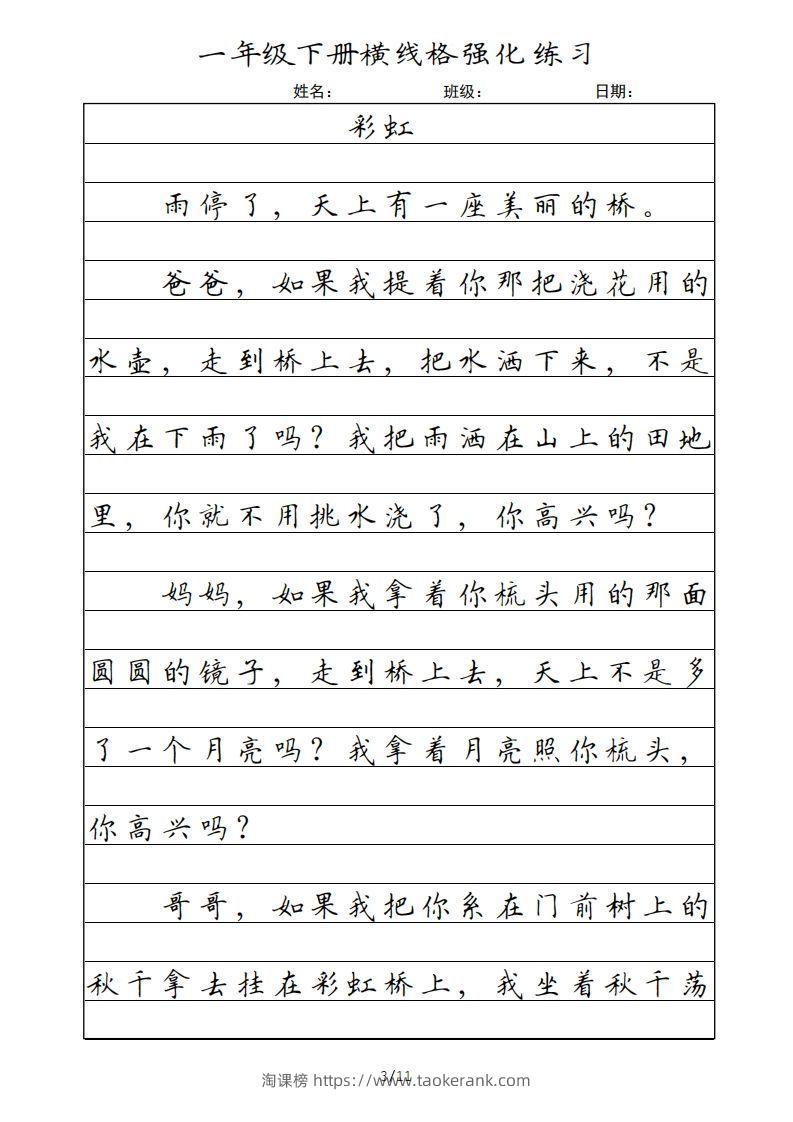 一年级下册横线格强化练习
姓名： 班级： 日期：
彩虹
雨停了，天上有一座美丽的桥。
爸爸，如果我提着你那把浇花用的
水壶，走到桥上去，把水洒下来，不是
我在下雨了吗？我把雨洒在山上的田地
里，你就不用挑水浇了，你高兴吗？
妈妈，如果我拿着你梳头用的那面
圆圆的镜子，走到桥上去，天上不是多
了一个月亮吗？我拿着月亮照你梳头，
你高兴吗？
哥哥，如果我把你系在门前树上的
秋千拿去挂在彩虹桥上，我坐着秋千荡
3/11
淘课榜 https://www.taokerank.com